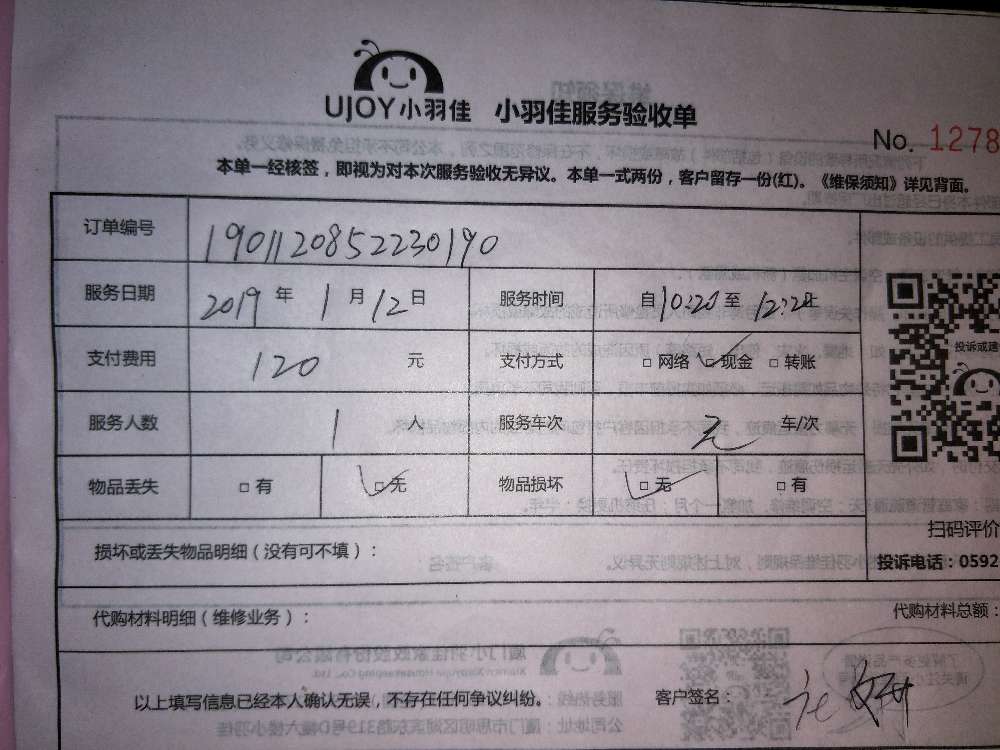 UJOY小羽佳 小羽佳服务验收单
No. 1278
本单一经核签，即视为对本次服务验收无异议。本单一式两份，客户留存一份(红)。《维保须知》详见背面。
订单编号 1901120852230190
服务日期 2019 年 1 月 12 日 服务时间 自 10:20 至 12:20 止
支付费用 120 元 支付方式 □ 网络 ☑ 现金 □ 转账
投诉或建
服务人数 1 人 服务车次 无 车/次
物品丢失 □ 有 ☑ 无 物品损坏 ☑ 无 □ 有
扫码评价
损坏或丢失物品明细（没有可不填）：
投诉电话：0592
代购材料明细（维修业务）： 代购材料总额：
以上填写信息已经本人确认无误，不存在任何争议纠纷。 客户签名：